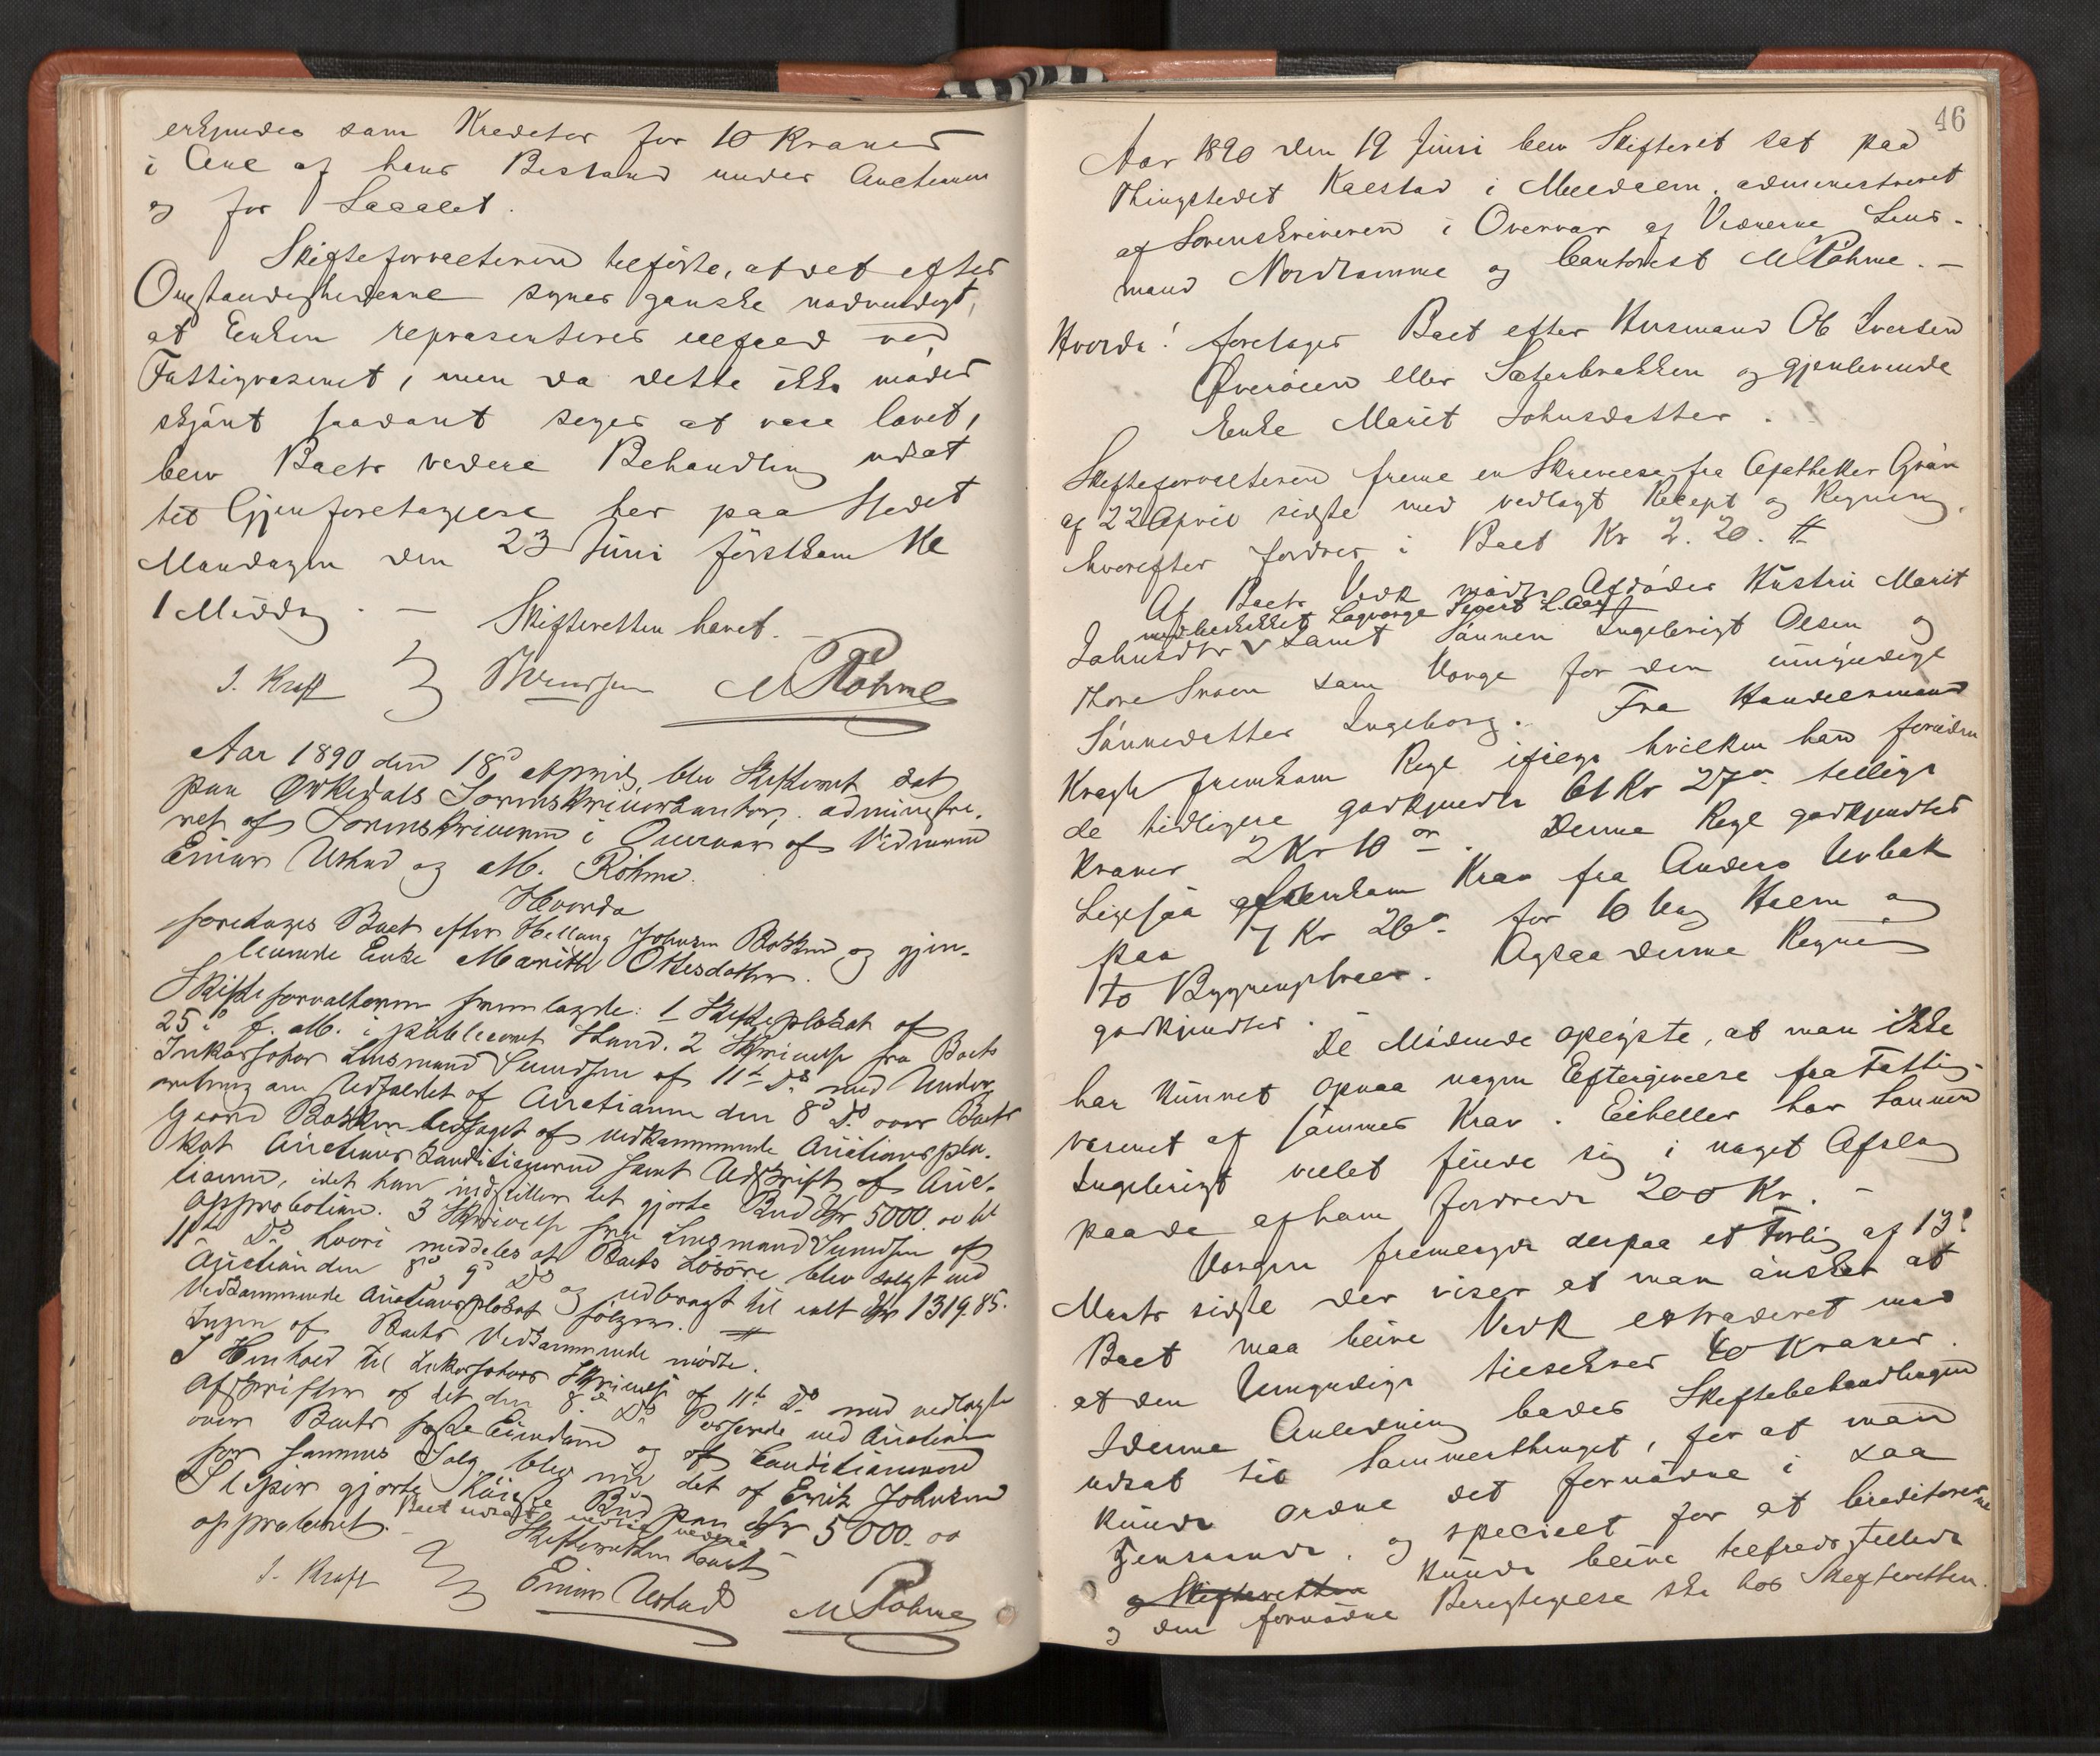 erkjendes som Kreditor for 10 Kroner
i Ane af hans Bistand under Auctionen
og for Localet.
Skifteforvalteren tilførte, at det efter
Omstændighederne synes ganske nødvendigt,
at Enken repræsenteres ved
Fattigvæsenet, men da dette ikke møder
skjønt saadant siges at være lovet,
blev Boets videre Behandling udsat
til Gjenforetagelse her paa Stedet
Mandagen den 23 Juni førstkom Kl
1 Middag. — Skifteretten hævet. —
J. Kraft M Röhme
Aar 1890 den 18d April blev Skifteret sat
paa Orkedals Sorenskriverkontor, administre-
ret af Sorenskriveren i Overvær af Vidnerne
Einar Ustad og M. Röhme.
Hvorda
foretages Boet efter Johnsen og gjen-
levende Enke Marith Ottesdatter.
Skifteforvalteren fremlagde: 1 Skifteplakat af
25de f. M. i publiceret Stand. 2 Skrivelse fra Boets
Inkassator Lensmand af 11te Ds med Under
retning om Udfaldet af Auctionen den 8d Ds over Boets
Gaard ledsaget af vedkommende Auctionspla-
kat Auctions Conditionerne samt Udskrift af Auc-
tionen, idet han indstiller det gjorte Bud Kr 5000.00 til
Approbation. 3 Skrivelse fra Lensmand af
11te Ds hvori meddeles at Boets Løsøre blev solgt ved
Auction den 8d og 9d Ds og udbragt til ialt Kr 1319.85.
Vedkommende Auctionsplakat følger.
Ingen af Boets Vedkommende mødte.
I Henhold til Inkassators Skrivelse af 11te Ds med vedlagte
Afskrifter af det den 8de Ds Passerede ved Auction
over Boets faste Eiendom og af Conditionerne
for sammes Salg blev nu det af Erik Johnsen
gjorte høieste Bud paa Kr 5000.00
approberet. Boet udsat indtil videre
Skifteretten hævet
J. Kraft Einar Ustad M Röhme
46
Aar 1890 den 19 Juni blev Skifteret sat paa
Thingstedet Kalstad i Meldalen, administreret
af Sorenskriveren i Overvær af Vidnerne Lens-
mand Nordramme og Cantorist M Röhme. —
Hvorda: foretages Boet efter Husmand Ole Iversen
eller Sæterbækken og gjenlevende
Enke Marit Johnsdatter.
Skifteforvalteren freml en Skrivelse fra Apotheker Grøn
af 22 April sidste med vedlagt Recept og Regning,
hvorefter fordres i Boet Kr 2.20.
Af Boets Vedk mødte Afdødes Hustru Marit
med beskikket Lagværge
Johnsdtr samt Sønnen Ingebrigt Olsen og
Thore som Værge for den umyndige
Sønnedatter Ingeborg. Fra Handelsmand
Kragh fremkom Regn ifølge hvilken han foruden
de tidligere godkjendte 61 Kr 27 ør yderligere
Kræver 2 Kr 10 ør. Denne Regn godkjendtes
Ligesaa fremkom Krav fra Anders
paa 7 Kr 26 ø for 10 Vog Halm og
to Bygningstræer. Ogsaa denne Regning
godkjendtes.
De Mødende oplyste, at man ikke
har kunnet opnaa nogen Eftergivelse fra Fattig-
væsenet af sammes Krav. Eiheller har Sønnen
Ingebrigt villet finde sig i noget Afslag
paa de af ham fordrede 200 Kr. —
Værgen fremlagde derpaa et Forlig af 13de
Marts sidste der viser at man ønsker at
Boet maa blive Vedk extraderet mod
at den Umyndige tilsikres 40 Kroner.
I denne Anledning bades Skiftebehandlingen
udsat til Sommerthinget, for at man
kunde ordne det fornødne i saa
Henseende, og specielt for at Creditorerne
og Skifteretten kunde blive tilfredsstillede
og den fornødne Berigtigelse ske hos Skifteretten.